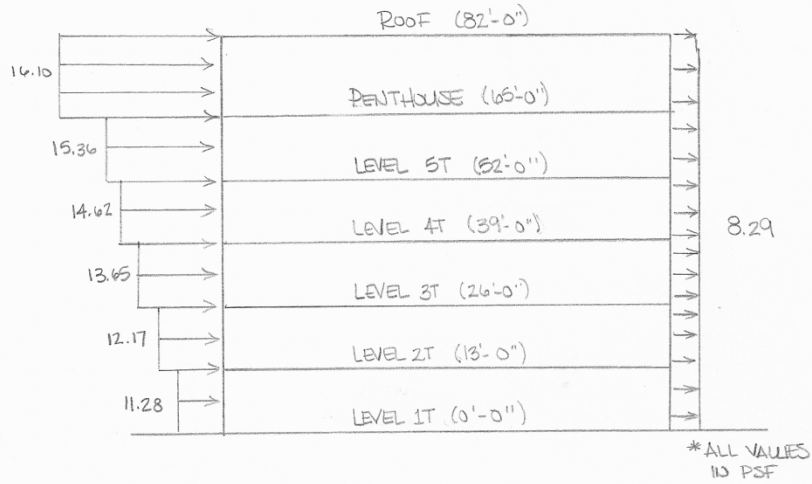 ROOF (82'-0")
16.10
PENTHOUSE (65'-0")
15.36
LEVEL 5T (52'-0")
14.62
LEVEL 4T (39'-0")
8.29
13.65
LEVEL 3T (26'-0")
12.17
LEVEL 2T (13'-0")
11.28
LEVEL 1T (0'-0")
*ALL VALUES
IN PSF